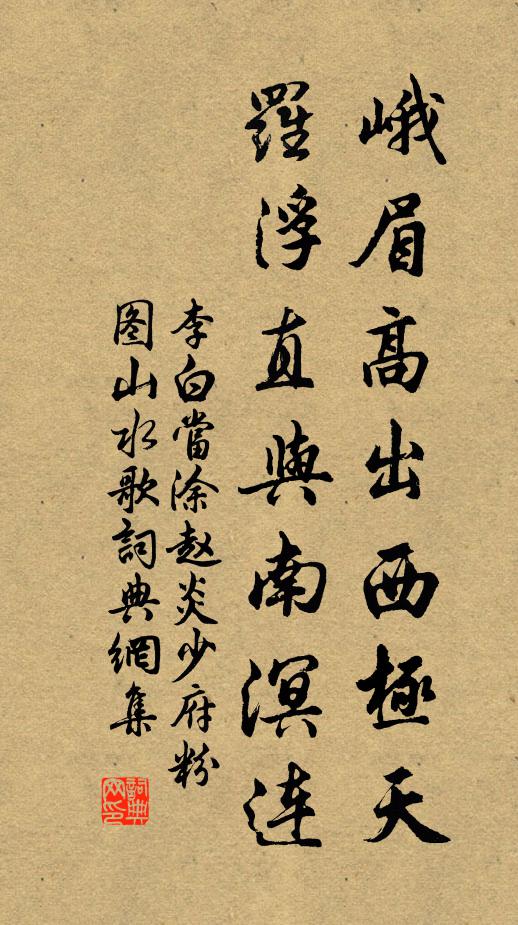 峨眉高出西極天
羅浮直與南溟連
李白當涂赵炎少府粉
图山水歌詞典網集
詞典网印